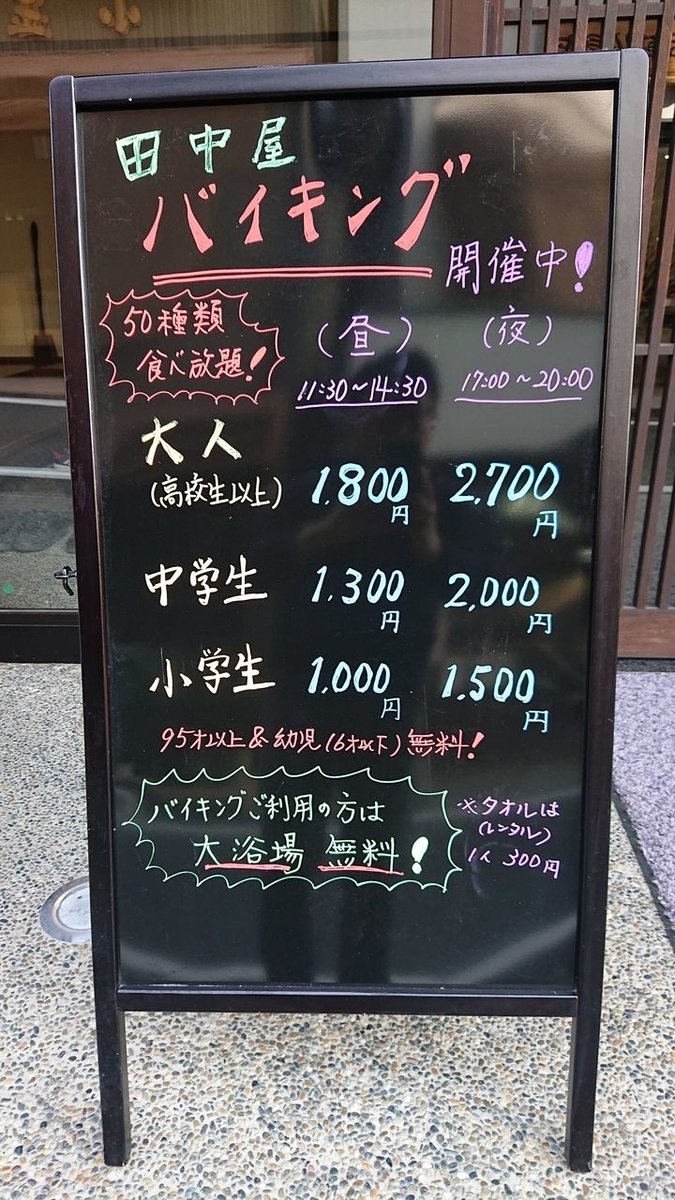 田中屋
バイキング
開催中!
50種類
食べ放題!
(昼)
11:30~14:30
(夜)
17:00~20:00
大人
(高校生以上)
1,800円
2,700円
中学生
1,300円
2,000円
小学生
1,000円
1,500円
95才以上&幼児(6才以下)無料!
バイキングご利用の方は
大浴場 無料!
※タオルは
(レンタル)
1人 300円